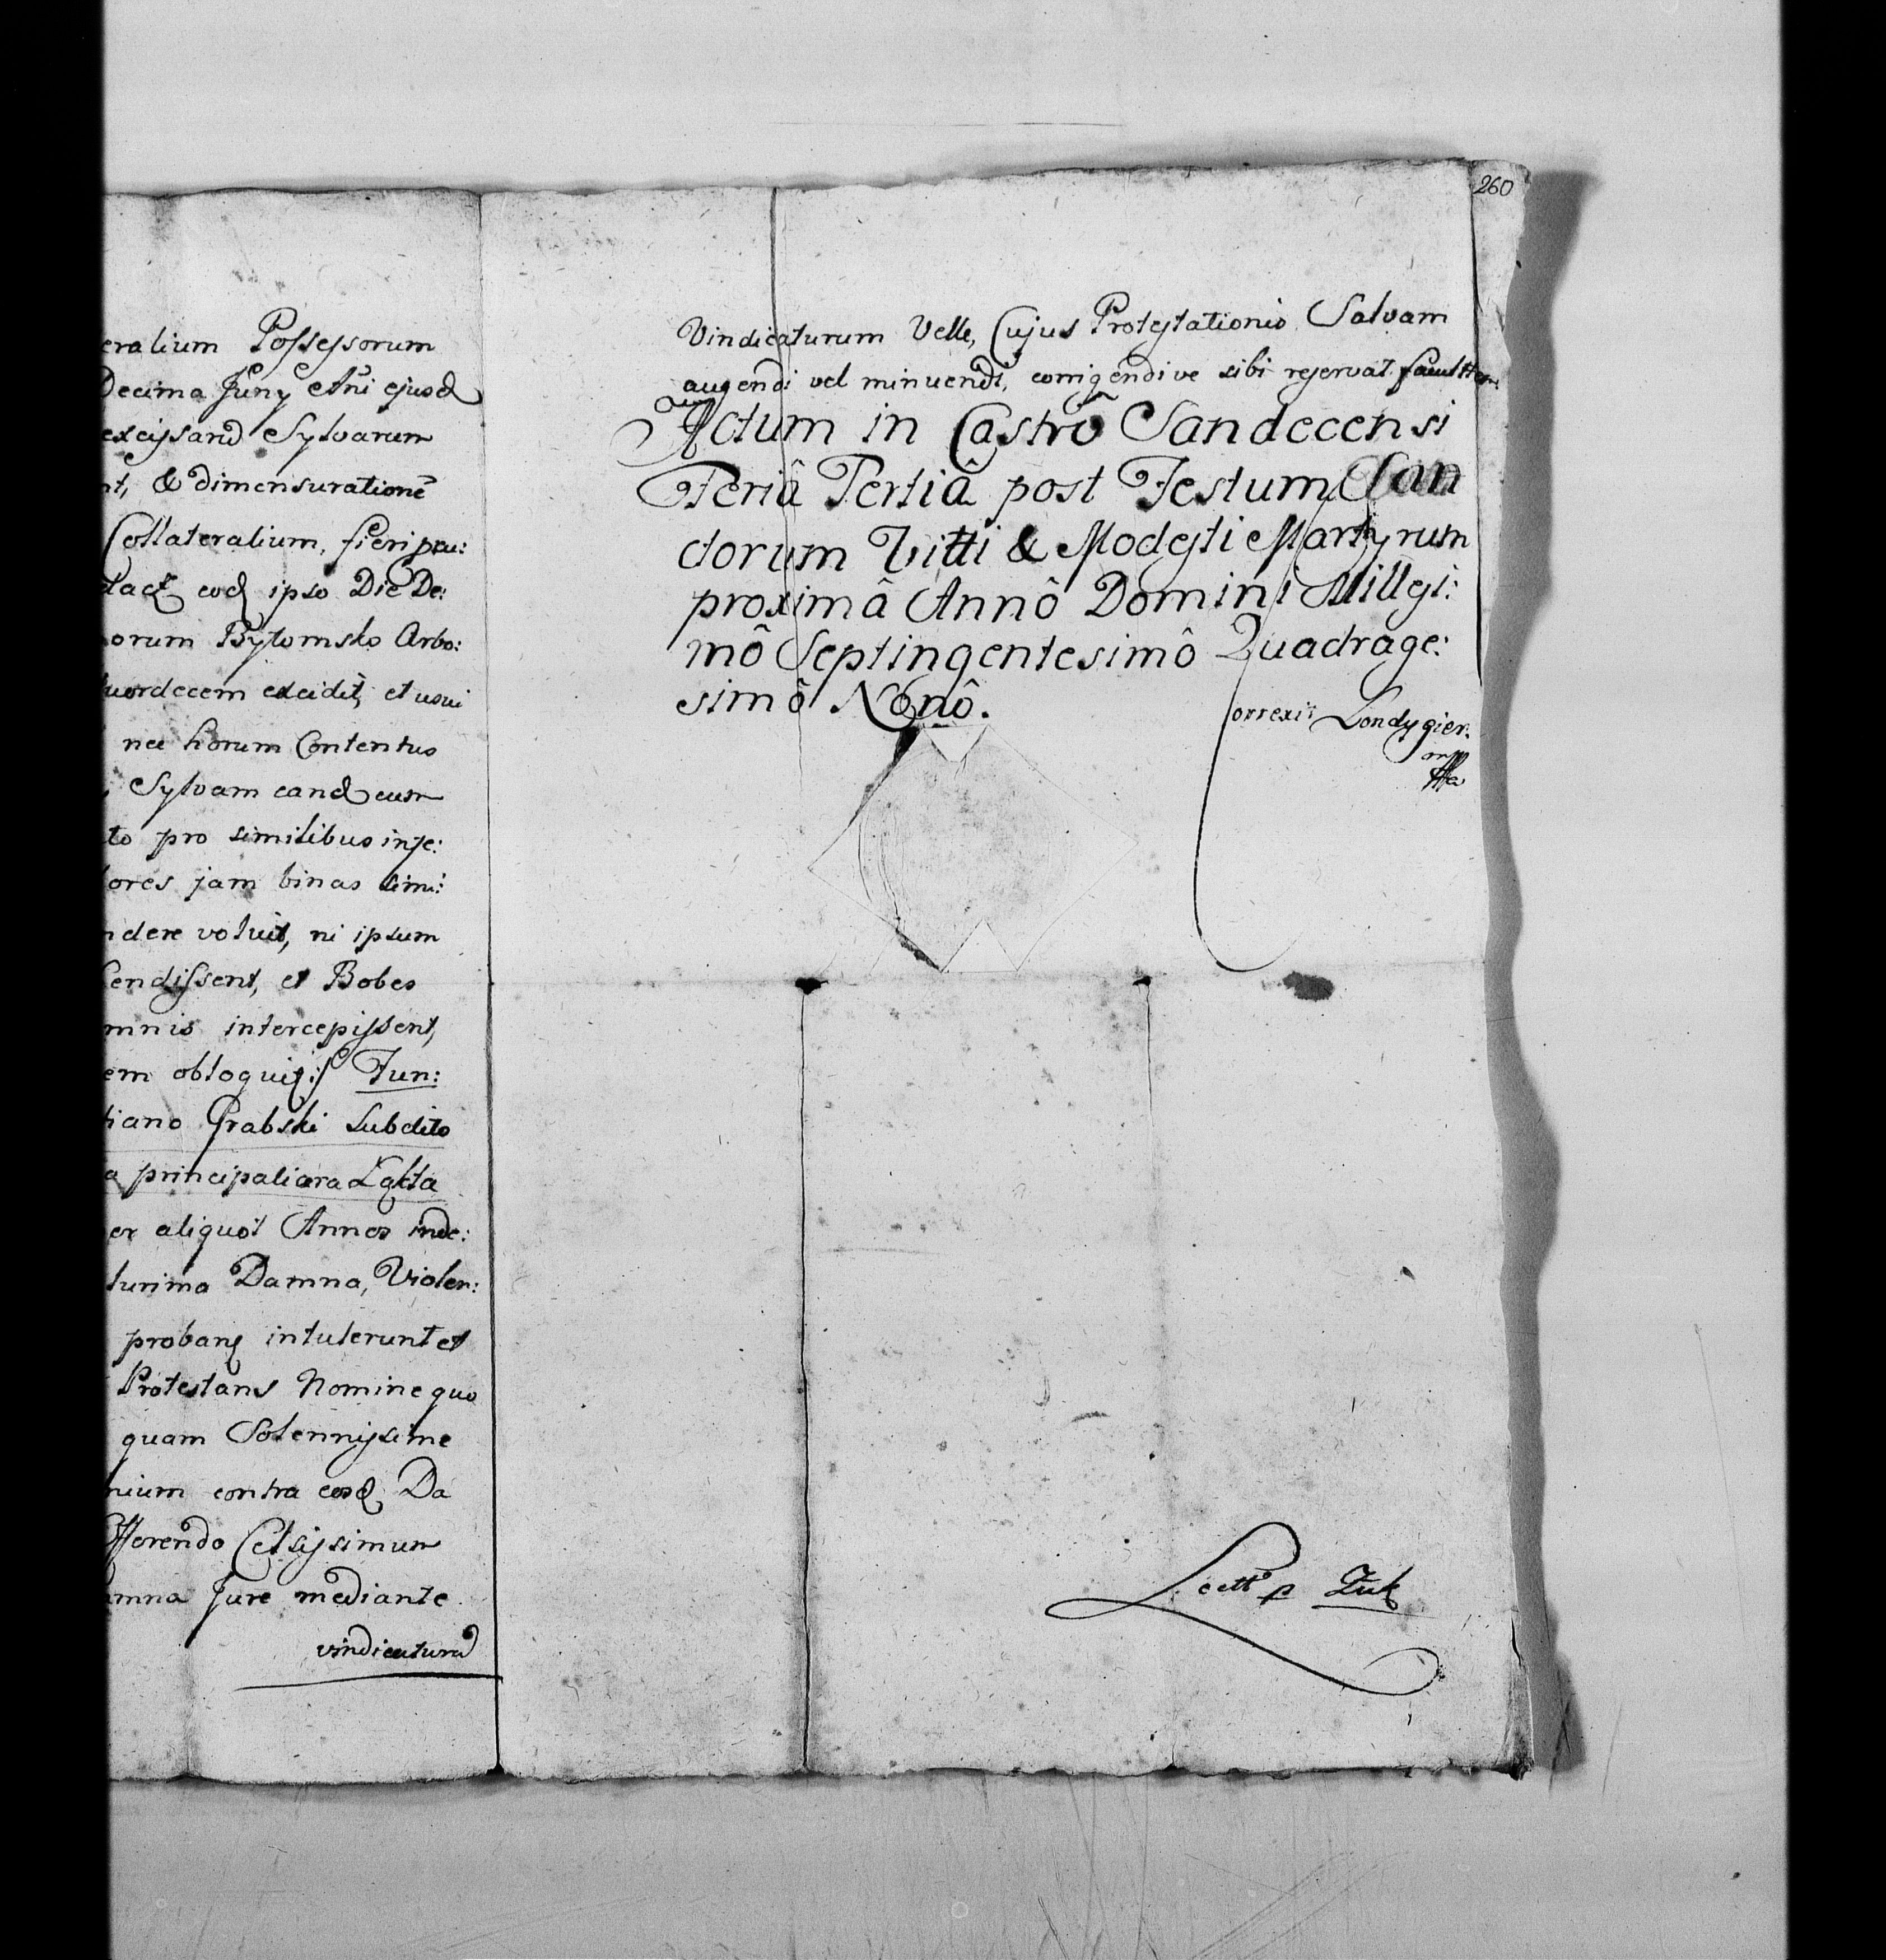 eralium Possessorum
Decima Juny Ani ejusd
excissarũ Sylvarum
nt, & dimensurationẽ
Collateralium, fieri
eod ipso Die De:
orum Bytomsko Arbo:
uordecem excidit, et usui
nec horum Contentus
Sylvam eand cum
to pro similibus inje:
ores jam binas simi:
ndere voluit, ni ipsum
endissent, et Bobes
mnis intercepissent,
em obloquiȝ:/ Fun:
tiano Grabski Subdito
a principaliora
er aliquot Annos inde:
lurima Damna, Violen:
probanȝ intulerunt et
Protestans Nomine quo
quam Solennissime
nium contra eosd Da
fferendo Celsissimum
amna Jure mediante
vindicaturũ
260
Vindicaturum Velle, Cujus Protestationis Salvam
augendi vel minuendi, corrigendive sibi reservat facultem
Actum in Castrô Sandecensi
Feriâ Tertiâ post Festum San
ctorum Vitti & Modesti Martyrum
proximâ Annô Domini Millesi:
mô Septingentesimô Quadrage:
simô Nonô.
Correxit Londygier.
mppa
Lectt p Żuk